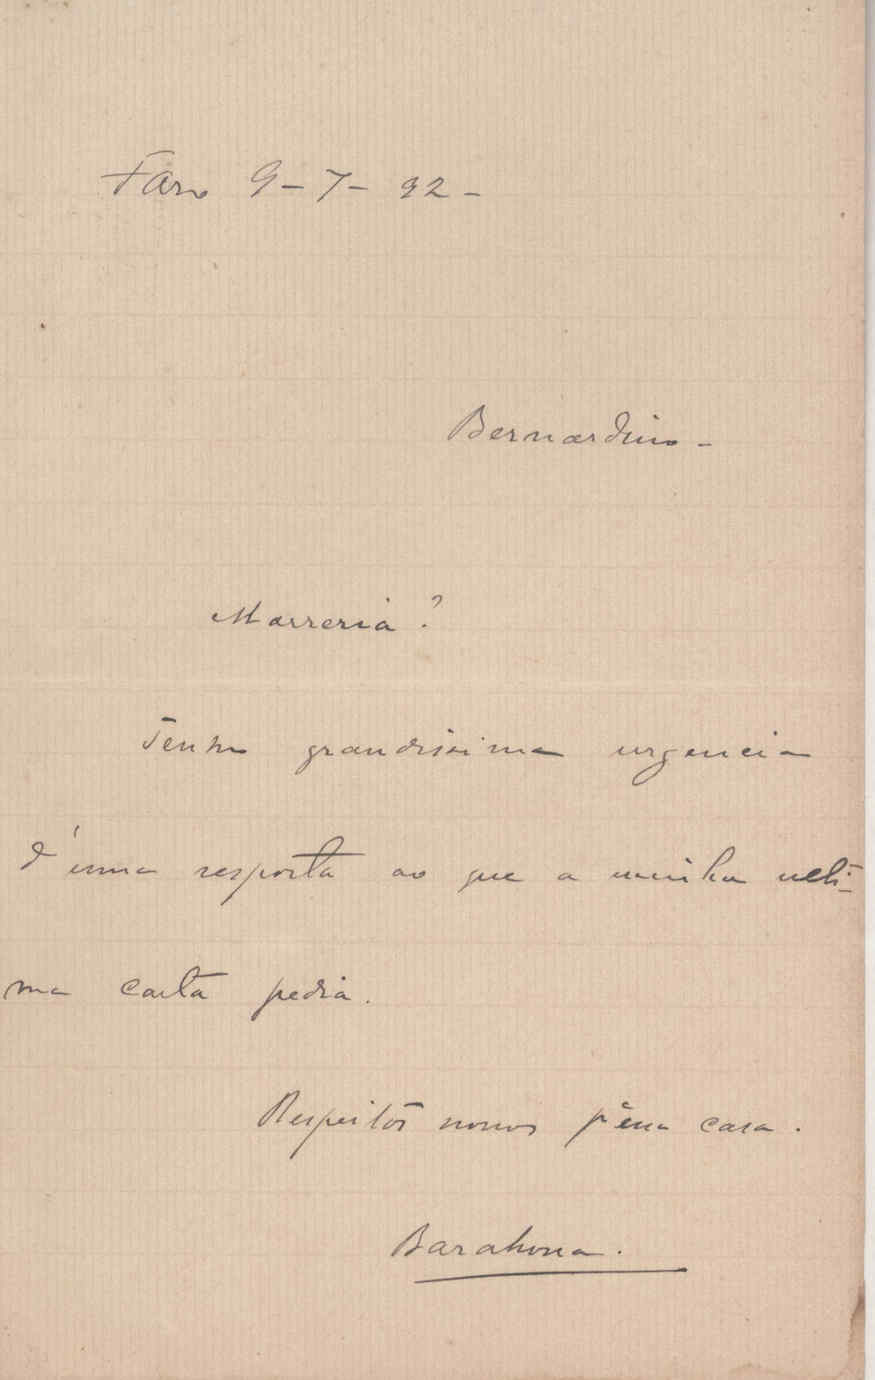 Faro 9-7-92-
Bernardino-
Morreria?
Tenho grandissima urgencia
d'uma resposta ao que a minha ulti-
ma carta pedia.
Respeitos nossos pª essa casa.
Barahona.